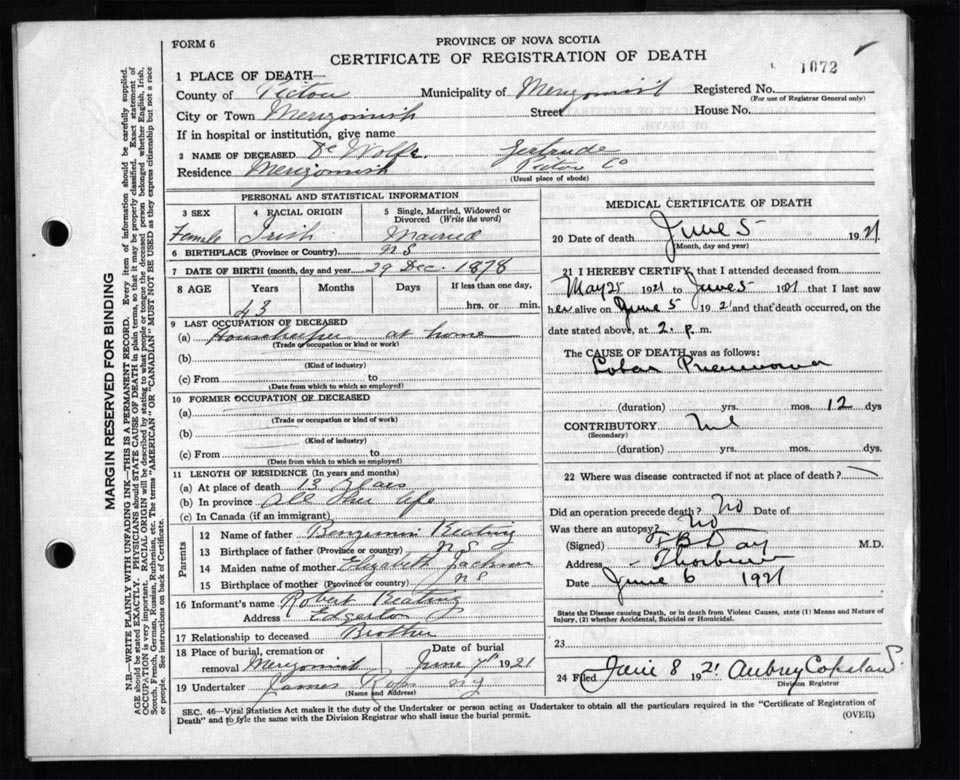 FORM 6
PROVINCE OF NOVA SCOTIA
CERTIFICATE OF REGISTRATION OF DEATH
1072
1 PLACE OF DEATH—
County of Pictou Municipality of Merigomish Registered No.
(For use of Registrar General only)
City or Town Merigomish Street House No.
If in hospital or institution, give name
2 NAME OF DECEASED De Wolfe. Gertrude
Residence Merigomish Pictou Co
(Usual place of abode)
PERSONAL AND STATISTICAL INFORMATION
3 SEX 4 RACIAL ORIGIN 5 Single, Married, Widowed or Divorced (Write the word)
Female Irish Married
6 BIRTHPLACE (Province or Country) N S
7 DATE OF BIRTH (month, day and year 29 Dec. 1878
8 AGE Years Months Days If less than one day,
43 hrs. or min.
9 LAST OCCUPATION OF DECEASED
(a) Housekeeper at home
(Trade or occupation or kind or work)
(b)
(Kind of industry)
(c) From to
(Date from which to which so employed)
10 FORMER OCCUPATION OF DECEASED
(a)
(Trade or occupation or kind of work)
(b)
(Kind of industry)
(c) From to
(Date from which to which so employed)
11 LENGTH OF RESIDENCE (In years and months)
(a) At place of death 13 Years
(b) In province All Her life
(c) In Canada (if an immigrant)
Parents
12 Name of father Benjamin Keating
13 Birthplace of father (Province or country) N S
14 Maiden name of mother Elizabeth Jackson
15 Birthplace of mother (Province or country) N S
16 Informant's name Robert Keating
Address Egerton
17 Relationship to deceased Brother
18 Place of burial, cremation or Date of burial
removal Merigomish June 7 1921
19 Undertaker James Ross
(Name and Address)
MEDICAL CERTIFICATE OF DEATH
20 Date of death June 5 1921
(Month, day and year)
21 I HEREBY CERTIFY that I attended deceased from
May 25 1921 to June 5 1921 that I last saw
her alive on June 5 1921 and that death occurred, on the
date stated above, at 2. p.m.
The CAUSE OF DEATH was as follows:
Lobar Pneumonia
(duration) yrs. mos. 12 dys
CONTRIBUTORY Nil
(Secondary)
(duration) yrs. mos. dys.
22 Where was disease contracted if not at place of death?
Did an operation precede death? No Date of
Was there an autopsy? No
(Signed) F B Day M.D.
Address Thorburn
Date June 6 1921
State the Disease causing Death, or in death from Violent Causes, state (1) Means and Nature of
Injury, (2) whether Accidental, Suicidal or Homicidal.
23
24 Filed June 8 1921 Aubrey Copeland
Division Registrar
SEC. 46—Vital Statistics Act makes it the duty of the Undertaker or person acting as Undertaker to obtain all the particulars required in the "Certificate of Registration of
Death" and to fyle the same with the Division Registrar who shall issue the burial permit.
(OVER)
MARGIN RESERVED FOR BINDING
N.B.—WRITE PLAINLY WITH UNFADING INK—THIS IS A PERMANENT RECORD. Every item of information should be carefully supplied.
AGE should be stated EXACTLY. PHYSICIANS should STATE CAUSE OF DEATH in plain terms, so that it may be properly classified. Exact statement of
OCCUPATION is very important. RACIAL ORIGIN will be described by stating to what people or tongue the deceased person belonged whether English, Irish,
Scotch, French, German, Russian, Ruthenian, etc. The terms "AMERICAN" or "CANADIAN" MUST NOT BE USED as they express citizenship but not a race
or people. See instructions on back of Certificate.